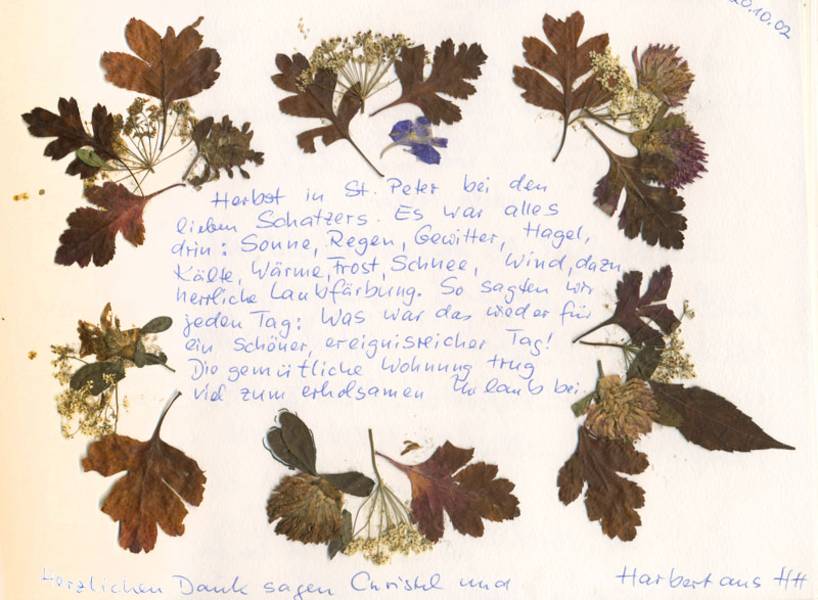 20.10.02
Herbst in St. Peter bei den
lieben Schatzers. Es war alles
drin: Sonne, Regen, Gewitter, Hagel,
Kälte, Wärme, Frost, Schnee, Wind, dazu
herrliche Laubfärbung. So sagten wir
jeden Tag: Was war das wieder für
ein schöner, ereignisreicher Tag!
Die gemütliche Wohnung trug
viel zum erholsamen Urlaub bei.
Herzlichen Dank sagen Christel und Harbert aus HH